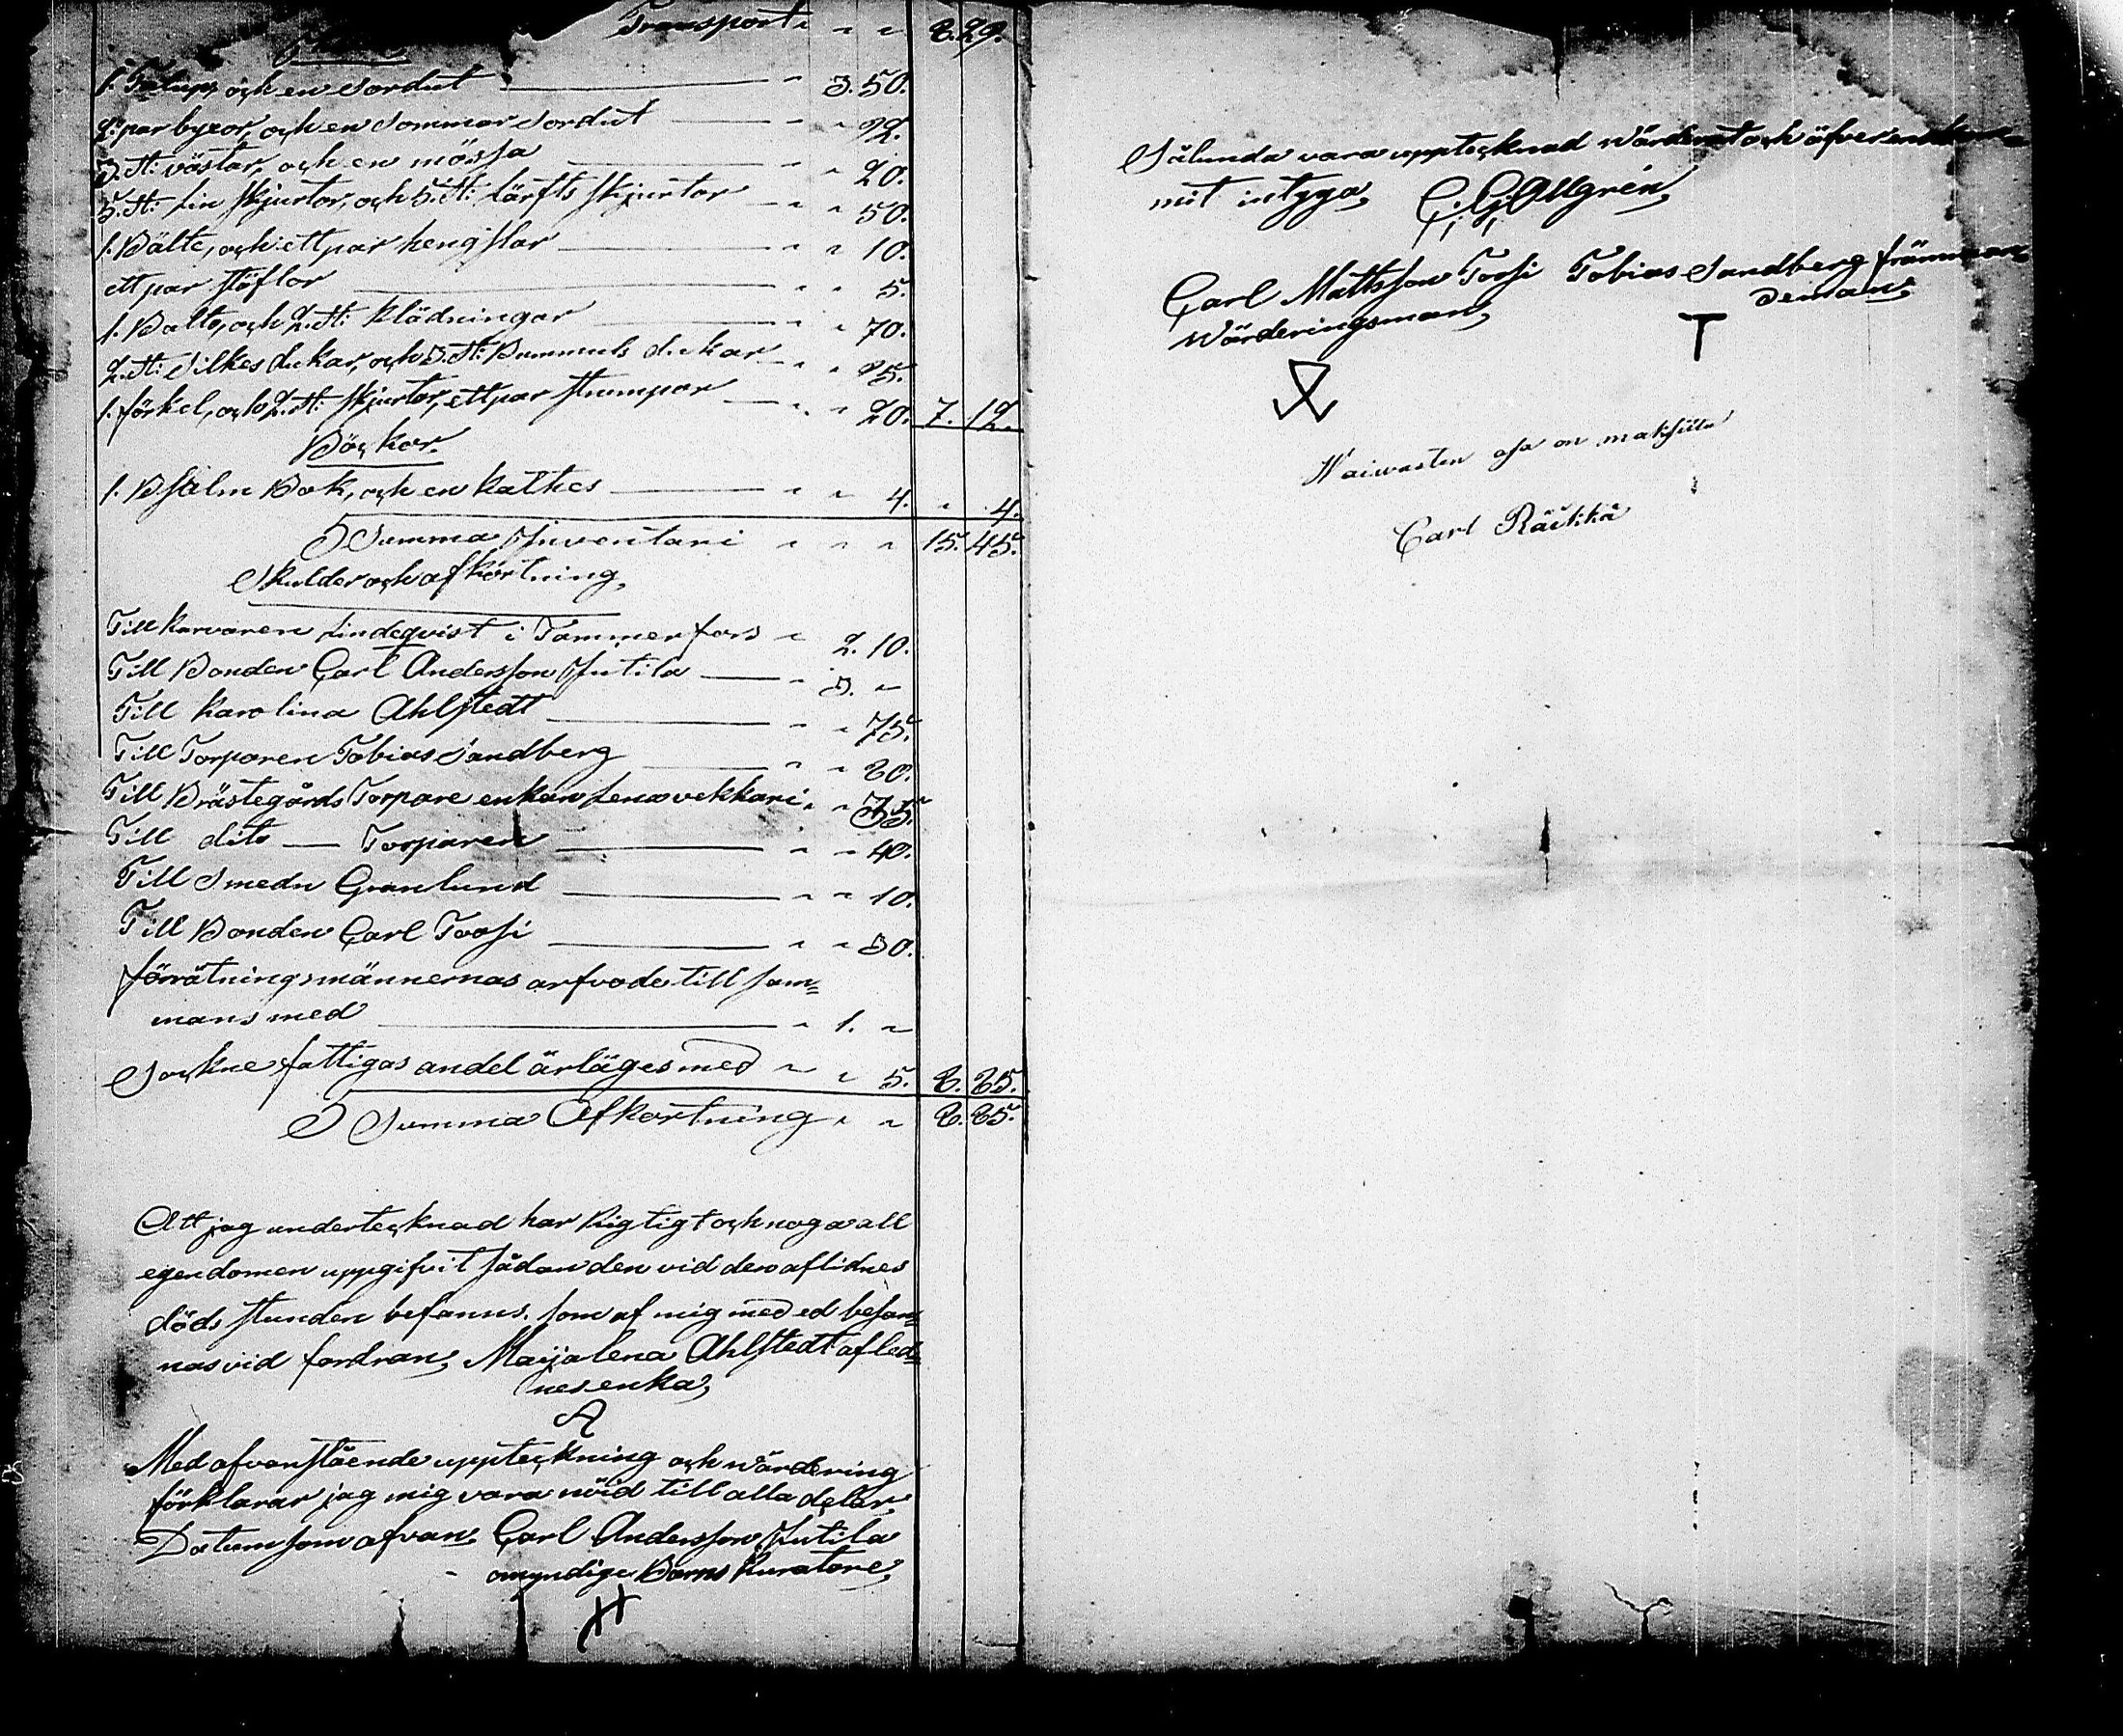 Transport " " 8. 29.
1. Tulup, och en Sordut " 3. 50.
2. par byxor, och en Sommar Sordut " " 92.
3. St: västar, och en mössa " 20.
5. St: Lin Skjortor, och 5. St: lärfts Skjortor " " 50.
1. Bälte, och ett par hengslar " " 10.
ett par Stöflor " " 5.
1. Balto, och 2. St: Klädningar " " 70.
2. St: Silkes dukar, och 3. St: Bummuls dukar " " 95.
1. förkel, och 2. St: Skjortor, ett par Strumpor " " 20. 7. 12.
Böcker.
1. Psalm Bok, och en kathes " " 4. " 4.
Summa Inventari " " " 15. 45.
Skulder och afkortning,
Till Karvaren Lindeqvist i Tammerfors " 2. 10.
Till Bonden Carl Andersson Jutila " 3. "
Till Karolina Ahlstedt " " 75.
Till Torparen Tobias Sandberg " " 80.
Till Prästegårds Torpare enkan Lena vekkari " " 35.
Till dito Torparen " " 40.
Till Smedn Granlund " " 10.
Till Bonden Carl Toosi " " 30.
förrätningsmännernas arfvode till sam=
mans med " 1. "
Sockne fattigas andel ärläges med " " 5. 8. 85.
Summa Afkortning " " 8. 85.
Att jag undertecknad har Rigtigt och noga all
egendomen uppgifvit sådan den vid den aflidnes
döds stunden befanns. som af mig med ed besan=
nas vid fordran, Maijalena Ahlstedt afled=
nes enka,
Med ofvanstående uppteckning och wärdering
förklarar jag mig vara nöid till alla delar
Datum som ofvan Carl Andersson Jutila
omyndige Barns Kuratore,
Sålunda vara upptecknad wärderat och
mit intyga, C. G. Allgrén,
Carl Mattsson Toosi Tobias Sandberg främman
wärderingsman, deman,
T
Waiwasten osa on maksettu
Carl Räikkä